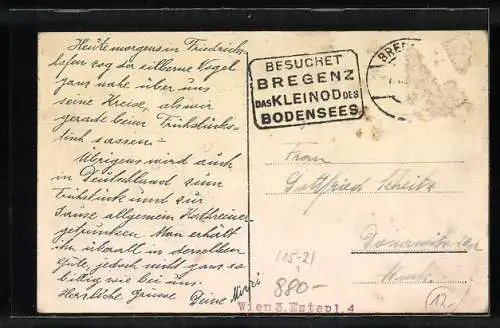 Heute morgens in Friedrichs-
hafen zog der silberne Vogel
ganz nahe über uns
seine Kreise, als wir
gerade beim Frühstücks-
tisch sassen.-
Übrigens wird auch
in Deutschland zum
Frühstück und zur
Jause allgemein
getrunken. Man erhält
ihn überall in derselben
Güte, jedoch nicht ganz so
billig wie bei uns.
Herzliche Grüsse
Deine Mizzi
BESUCHET
BREGENZ
DAS KLEINOD DES
BODENSEES
BREG
Frau
Gottfried
(15-2)
880-
Wien 3. 4
12-